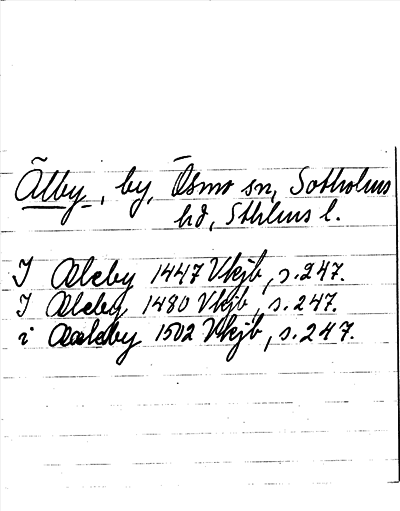 Älby, by, Ösmo sn, Sotholms
hd, Sthlms l.
I Ææleby 1447 Vkjb, s. 247.
I Æleby 1480 Vkjb, s. 247.
i Aaleby 1502 Vkjb, s. 247.